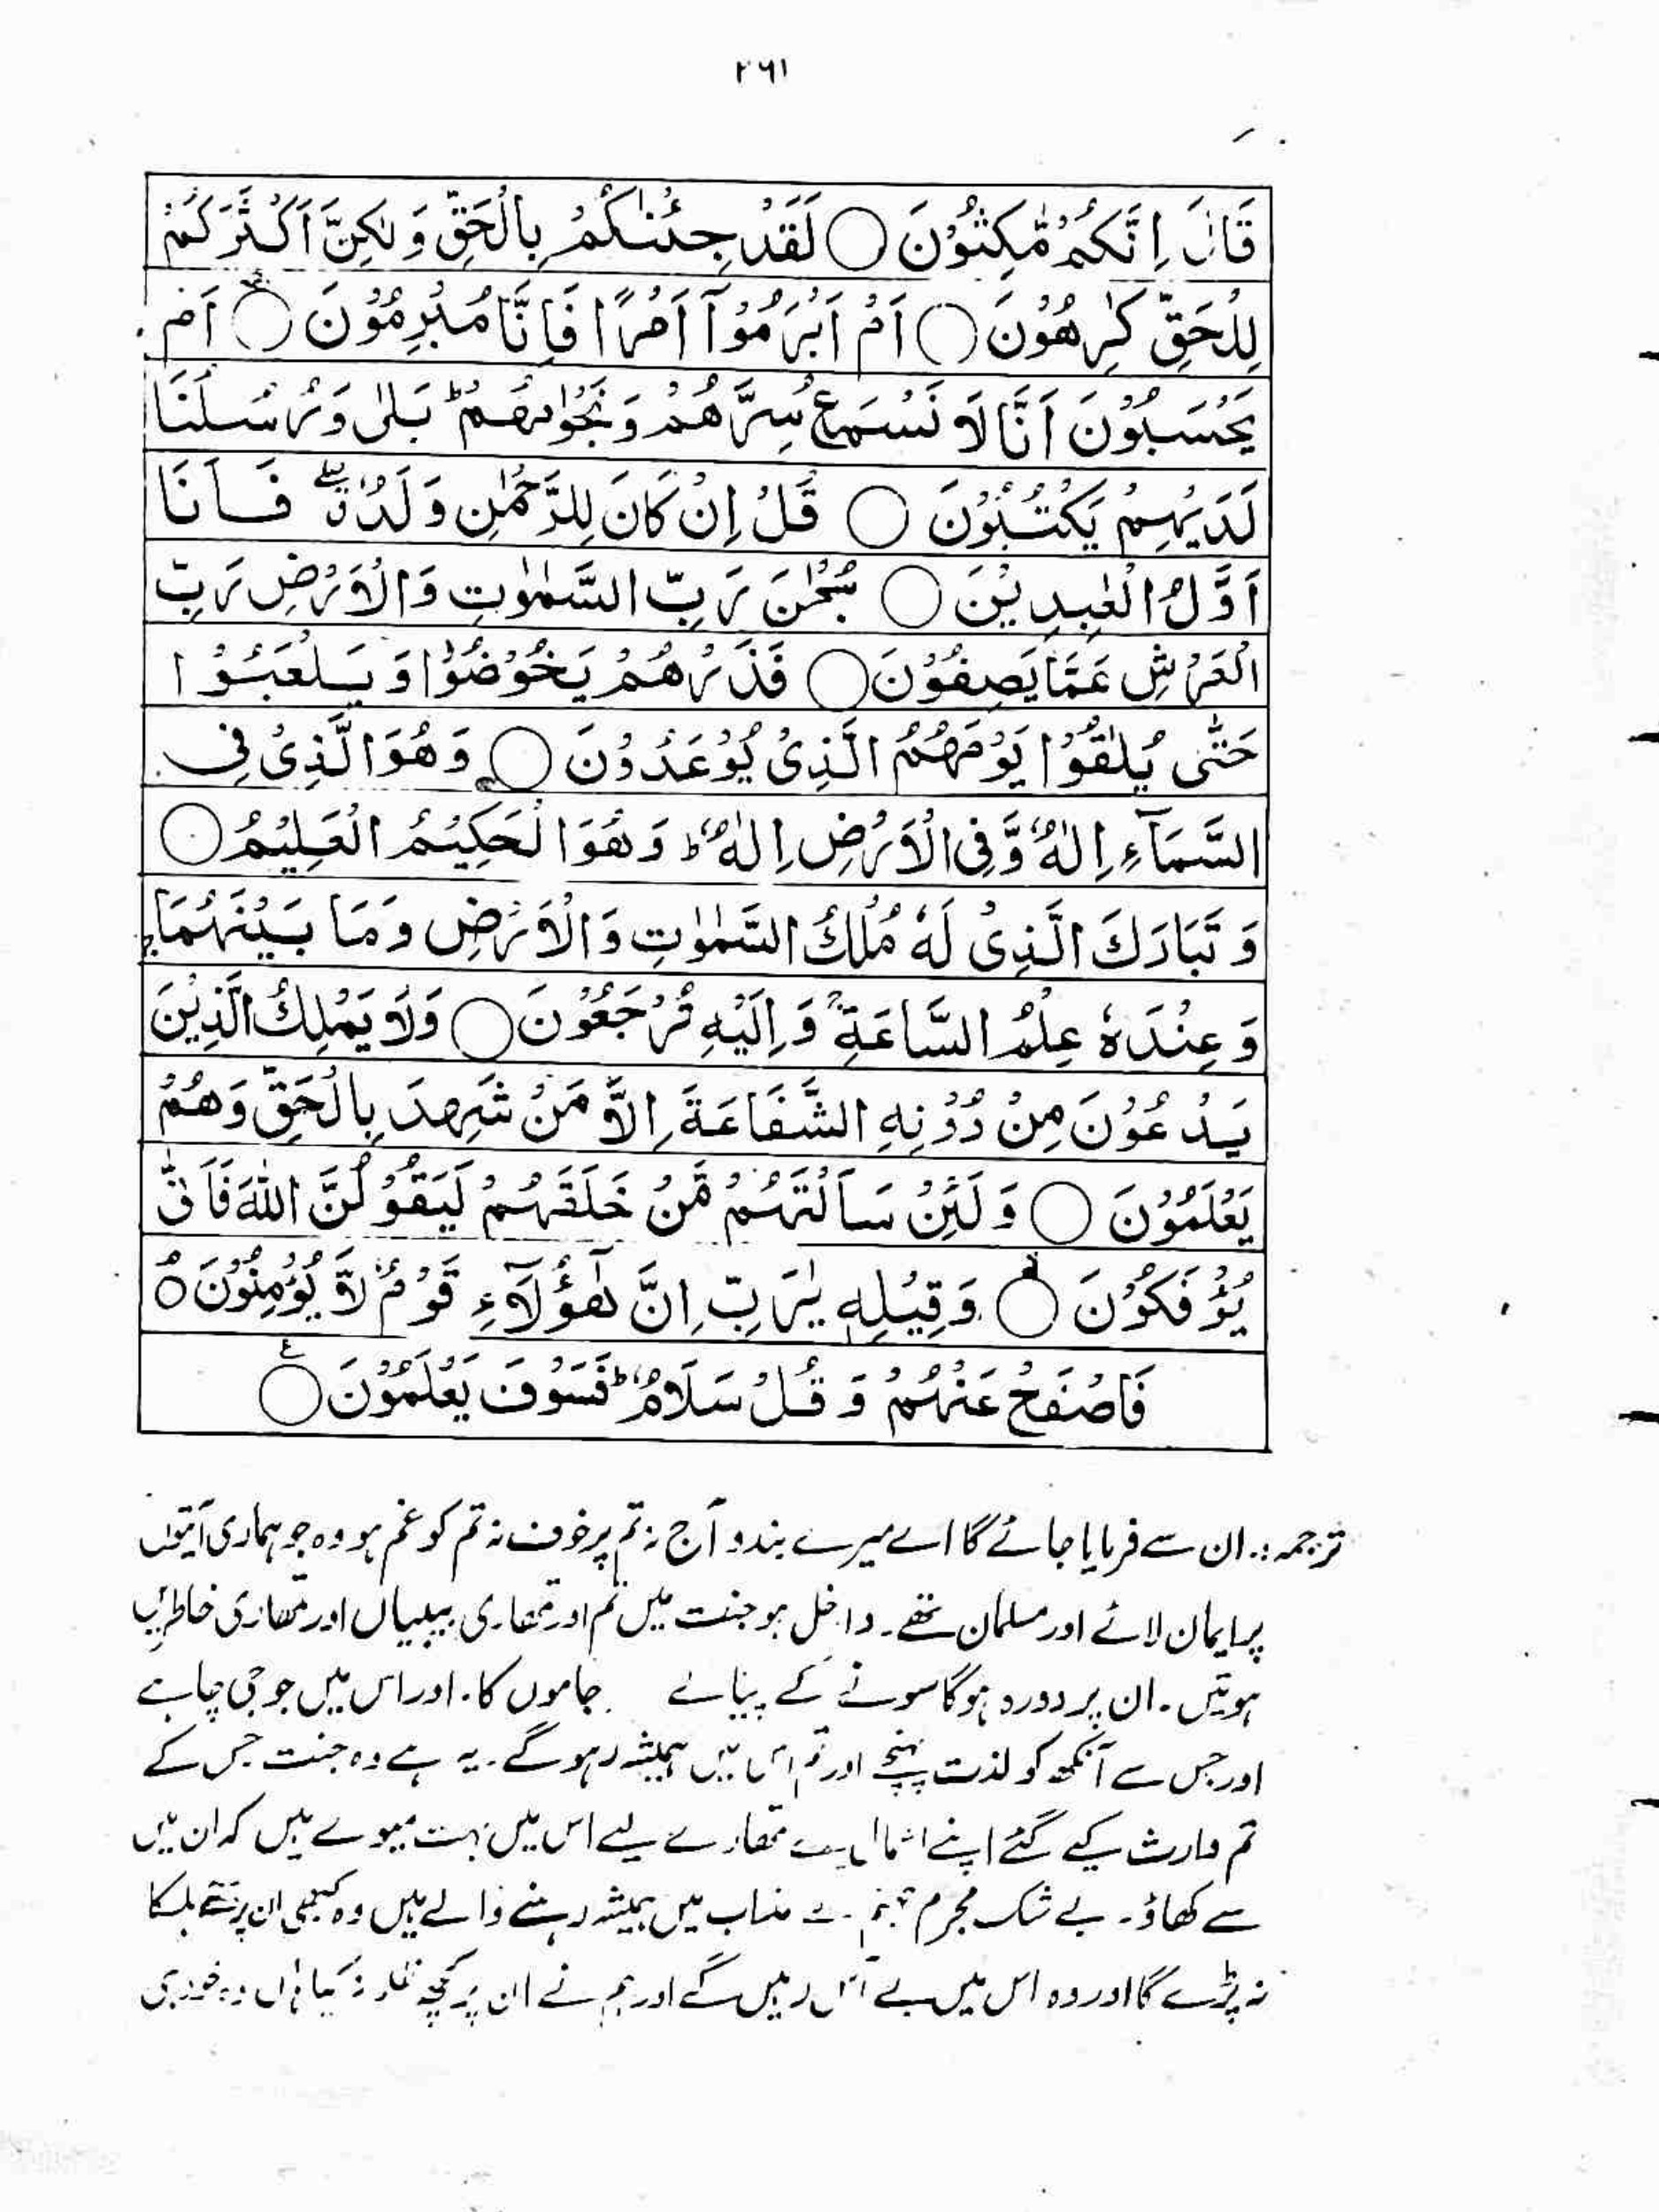 ۲۶۱
قَالَ اِنَّكُمْ مّٰكِثُوْنَ ○ لَقَدْ جِئْنٰكُمْ بِالْحَقِّ وَلٰكِنَّ اَكْثَرَكُمْ
لِلْحَقِّ كٰرِهُوْنَ ○ اَمْ اَبْرَمُوْٓا اَمْرًا فَاِنَّا مُبْرِمُوْنَ ○ اَمْ
يَحْسَبُوْنَ اَنَّا لَا نَسْمَعُ سِرَّهُمْ وَنَجْوٰىهُمْ ؕ بَلٰى وَرُسُلُنَا
لَدَيْهِمْ يَكْتُبُوْنَ ○ قُلْ اِنْ كَانَ لِلرَّحْمٰنِ وَلَدٌ ۖ فَاَنَا
اَوَّلُ الْعٰبِدِيْنَ ○ سُبْحٰنَ رَبِّ السَّمٰوٰتِ وَالْاَرْضِ رَبِّ
الْعَرْشِ عَمَّا يَصِفُوْنَ ○ فَذَرْهُمْ يَخُوْضُوْا وَيَلْعَبُوْا
حَتّٰى يُلٰقُوْا يَوْمَهُمُ الَّذِيْ يُوْعَدُوْنَ ○ وَهُوَ الَّذِيْ فِي
السَّمَآءِ اِلٰهٌ وَّفِي الْاَرْضِ اِلٰهٌ ؕ وَهُوَ الْحَكِيْمُ الْعَلِيْمُ ○
وَتَبَارَكَ الَّذِيْ لَهٗ مُلْكُ السَّمٰوٰتِ وَالْاَرْضِ وَمَا بَيْنَهُمَا ۚ
وَعِنْدَهٗ عِلْمُ السَّاعَةِ ۚ وَاِلَيْهِ تُرْجَعُوْنَ ○ وَلَا يَمْلِكُ الَّذِيْنَ
يَدْعُوْنَ مِنْ دُوْنِهِ الشَّفَاعَةَ اِلَّا مَنْ شَهِدَ بِالْحَقِّ وَهُمْ
يَعْلَمُوْنَ ○ وَلَئِنْ سَاَلْتَهُمْ مَّنْ خَلَقَهُمْ لَيَقُوْلُنَّ اللّٰهُ فَاَنّٰى
يُؤْفَكُوْنَ ○ وَقِيْلِهٖ يٰرَبِّ اِنَّ هٰٓؤُلَآءِ قَوْمٌ لَّا يُؤْمِنُوْنَ ○
فَاصْفَحْ عَنْهُمْ وَقُلْ سَلَامٌ ؕ فَسَوْفَ يَعْلَمُوْنَ ○
ترجمہ :. ان سے فرمایا جائے گا اے میرے بندو آج نہ تم پر خوف نہ تم کو غم ہو وہ جو ہماری آیتوں
پر ایمان لائے اور مسلمان تھے۔ داخل ہو جنت میں تم اور تمھاری بیبیاں اور تمھاری خاطریں
ہوتیں۔ ان پر دورہ ہوگا سونے کے پیالے جاموں کا۔ اور اس میں جو جی چاہے
اور جس سے آنکھ کو لذت پہنچے اور تم اس میں ہمیشہ رہو گے۔ یہ ہے وہ جنت جس کے
تم وارث کیے گئے اپنے اعمال سے تمھارے لیے اس میں بہت میوے ہیں کہ ان میں
سے کھاؤ۔ بے شک مجرم جہنم کے عذاب میں ہمیشہ رہنے والے ہیں وہ کبھی ان پر سے ہلکا
نہ پڑے گا اور وہ اس میں بے آس رہیں گے اور ہم نے ان پر کچھ ظلم نہ کیا ہاں وہ خود ہی